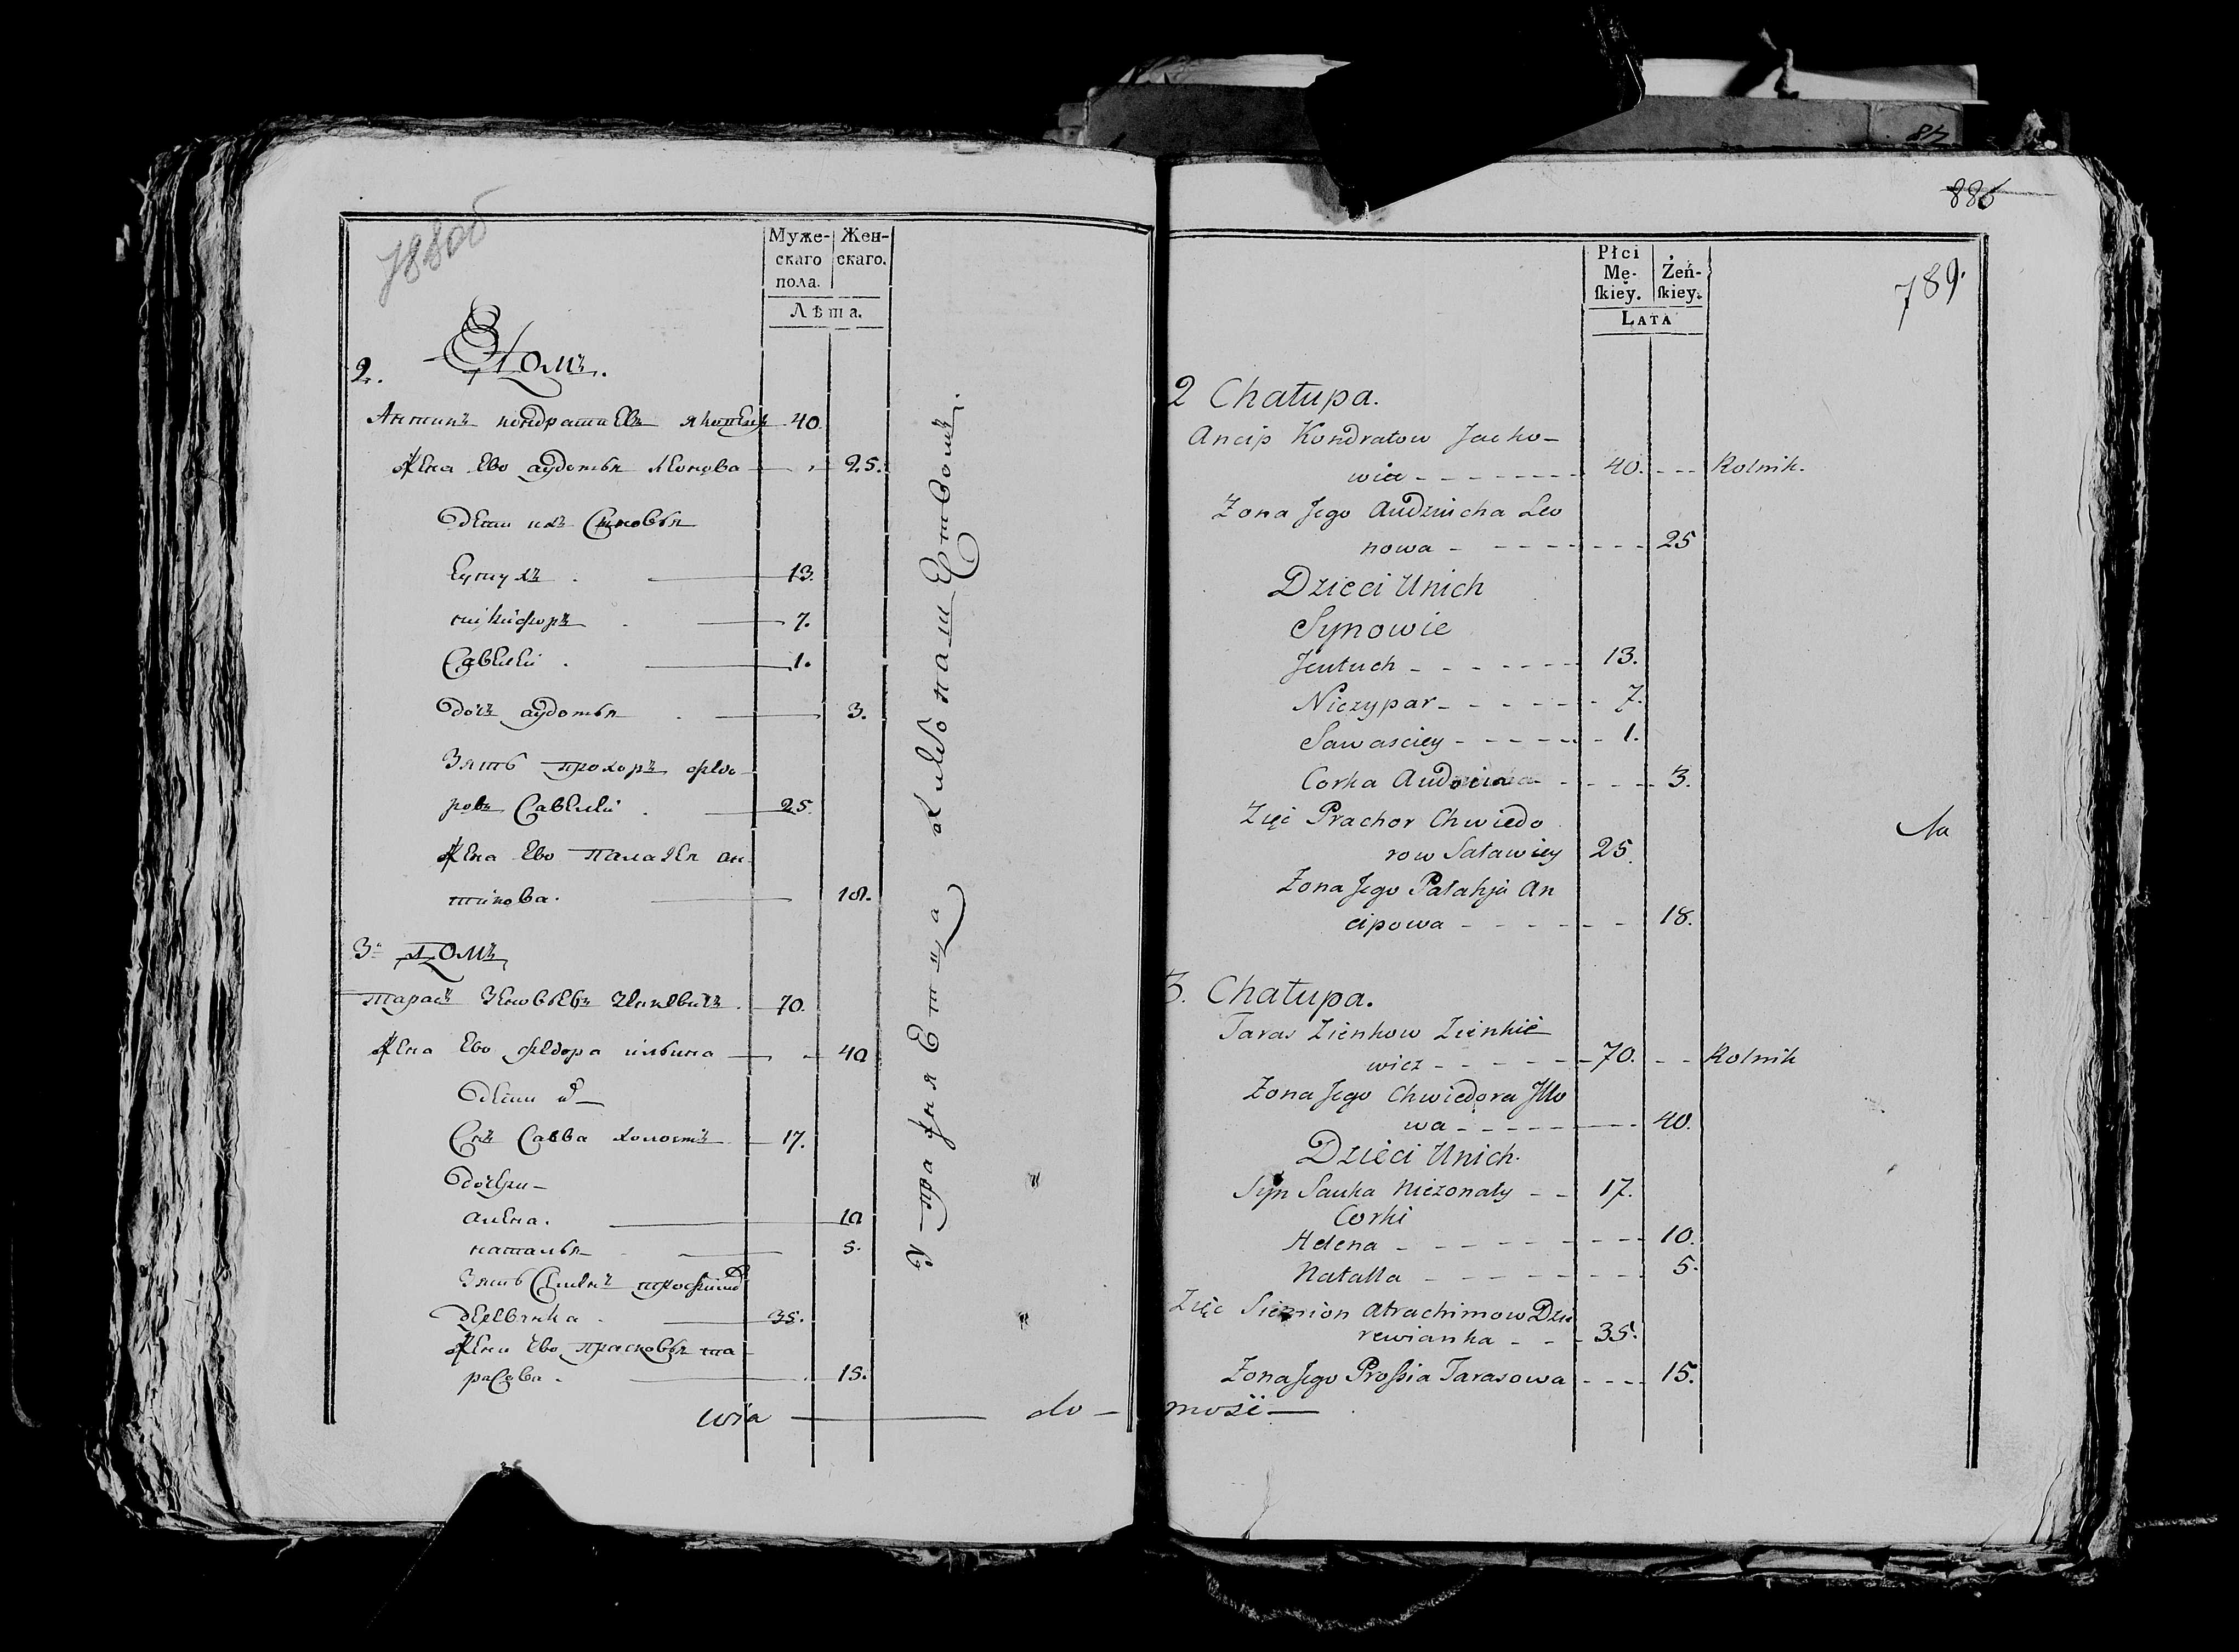 788об
Муже-
скаго
пола.
Жен-
скаго.
Лѣта.
2. Домъ.
Антипъ кондратьевъ 40.
Жена Ево аудотья леонова 25.
дети ихъ Сыновья
Еутухъ 13.
ничипоръ 7.
1.
дочъ аудотья 3.
Зять прохоръ федо
ровъ 25.
Жена Ево палагея ан
типова. 18.
3й домъ
тарасъ Зеновьевъ 70.
Жена Ево федора ильина 40
дети
Снъ Савва холостъ 17.
дочери
алена. 10
наталья 5.
Зять Семенъ
35.
Жена Ево прасковья та
расова 15.
Упражняется хлебопашеством.
wia do
84
886
789.
Płci
Mę-
skiey.
Żeń-
skiey.
LATA
2 Chałupa.
Ancip Kondratow Jacho-
wia 40. Rolnik.
Zona Jego Audziucha Leo
nowa 25
Dzieci Unich
Synowie
Jeutuch 13.
Niczypar 7.
Sawasciey 1.
Corka 3.
Zięć Prachor Chwiedo
row Saławiey 25.
Zona Jego Pałahja An
cipowa 18.
3. Chałupa.
Taras Zienkow Zienkie
wicz 70. Rolnik
Zona Jego Chwiedora Jllo
wa 40.
Dzieci Unich.
Syn Sauka Niezonaty 17.
Corki
Helena 10.
Natalla 5.
Zięć Siemion Atrachimow Dzie
rewianka 35.
Zona Jego Prossia Tarasowa 15.